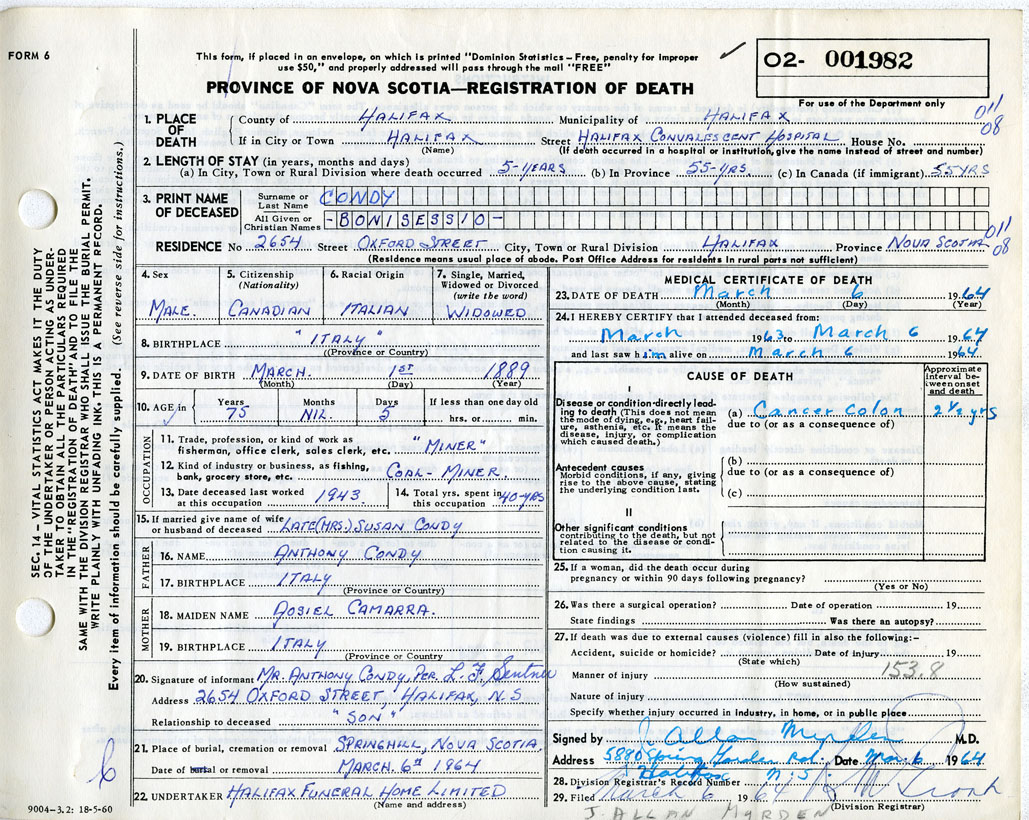 FORM 6
This form, if placed in an envelope, on which is printed "Dominion Statistics – Free, penalty for improper
use $50," and properly addressed will pass through the mail "FREE"
O2- 001982
For use of the Department only
PROVINCE OF NOVA SCOTIA—REGISTRATION OF DEATH
011
08
1. PLACE OF DEATH
County of HALIFAX Municipality of HALIFAX
If in City or Town HALIFAX Street HALIFAX CONVALESCENT HOSPITAL House No.
(Name) (If death occurred in a hospital or institution, give the name instead of street and number)
2. LENGTH OF STAY (in years, months and days)
(a) In City, Town or Rural Division where death occurred 5-YEARS (b) In Province 55-YRS. (c) In Canada (if immigrant) 55YRS
3. PRINT NAME OF DECEASED
Surname or Last Name CONDY
All Given or Christian Names -BONISESSIO-
RESIDENCE No 2654 Street OXFORD STREET City, Town or Rural Division HALIFAX Province NOVA SCOTIA
011
08
(Residence means usual place of abode. Post Office Address for residents in rural parts not sufficient)
SEC. 14 – VITAL STATISTICS ACT MAKES IT THE DUTY
OF THE UNDERTAKER OR PERSON ACTING AS UNDER-
TAKER TO OBTAIN ALL THE PARTICULARS REQUIRED
IN THE "REGISTRATION OF DEATH" AND TO FILE THE
SAME WITH THE DIVISION REGISTRAR WHO SHALL ISSUE THE BURIAL PERMIT.
WRITE PLAINLY WITH UNFADING INK. THIS IS A PERMANENT RECORD.
Every item of information should be carefully supplied. (See reverse side for instructions.)
4. Sex
MALE.
5. Citizenship
(Nationality)
CANADIAN
6. Racial Origin
ITALIAN
7. Single, Married,
Widowed or Divorced
(write the word)
WIDOWED
8. BIRTHPLACE "ITALY"
(Province or Country)
9. DATE OF BIRTH MARCH. 1ST 1889
(Month) (Day) (Year)
10. AGE in
Years Months Days If less than one day old
75 NIL. 5 hrs. or min.
OCCUPATION
11. Trade, profession, or kind of work as
fisherman, office clerk, sales clerk, etc. "MINER"
12. Kind of industry or business, as fishing,
bank, grocery store, etc. COAL-MINER.
13. Date deceased last worked
at this occupation 1943
14. Total yrs. spent in
this occupation 40-YRS
15. If married give name of wife
or husband of deceased LATE (MRS.) SUSAN CONDY
FATHER
16. NAME ANTHONY CONDY
17. BIRTHPLACE ITALY
(Province or Country)
MOTHER
18. MAIDEN NAME CAMARRA.
19. BIRTHPLACE ITALY
(Province or Country)
20. Signature of informant MR. ANTHONY CONDY, PER L. F. Sentner
Address 2654 OXFORD STREET, HALIFAX, N.S
Relationship to deceased "SON"
21. Place of burial, cremation or removal SPRINGHILL, NOVA SCOTIA.
Date of burial or removal MARCH. 6th 1964
22. UNDERTAKER HALIFAX FUNERAL HOME LIMITED
(Name and address)
9004-3.2: 18-5-60
MEDICAL CERTIFICATE OF DEATH
23. DATE OF DEATH March 6 1964
(Month) (Day) (Year)
24. I HEREBY CERTIFY that I attended deceased from:
March 1963 to March 6 1964
and last saw him alive on March 6 1964
CAUSE OF DEATH
Approximate
interval be-
tween onset
and death
I
Disease or condition directly lead-
ing to death (This does not mean
the mode of dying, e.g., heart fail-
ure, asthenia, etc. It means the
disease, injury, or complication
which caused death.)
(a) Cancer Colon 2½ yrs
due to (or as a consequence of)
Antecedent causes
Morbid conditions, if any, giving
rise to the above cause, stating
the underlying condition last.
(b)
due to (or as a consequence of)
(c)
II
Other significant conditions
contributing to the death, but not
related to the disease or condi-
tion causing it.
25. If a woman, did the death occur during
pregnancy or within 90 days following pregnancy?
(Yes or No)
26. Was there a surgical operation? Date of operation 19
State findings Was there an autopsy?
27. If death was due to external causes (violence) fill in also the following:–
Accident, suicide or homicide? Date of injury 19
(State which)
153.8
Manner of injury
(How sustained)
Nature of injury
Specify whether injury occurred in industry, in home, or in public place
Signed by J. Allan Myrden M.D.
Address 5880 Spring Garden Rd. Date Mar 6 1964
Halifax N.S.
28. Division Registrar's Record Number
29. Filed March 6 1964
(Division Registrar)
J. ALLAN MYRDEN